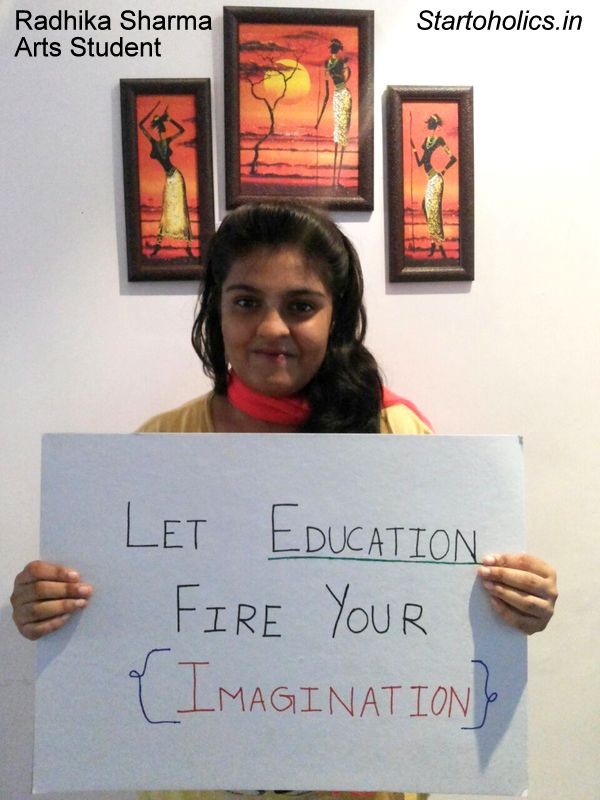 Radhika Sharma
Arts Student
Startoholics.in
LET EDUCATION
FIRE YOUR
{IMAGINATION}